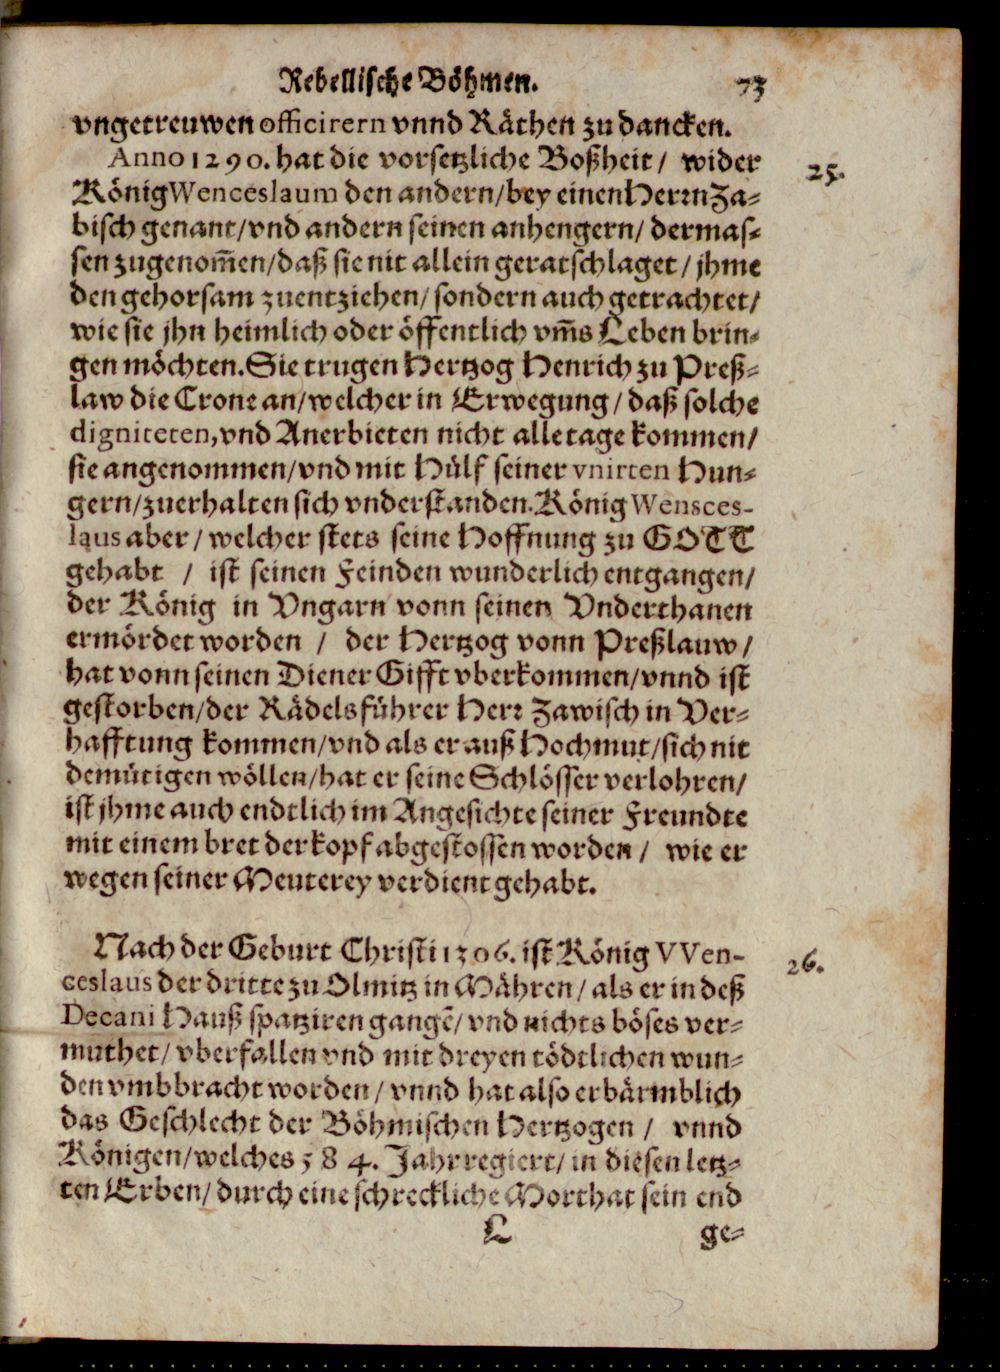 Rebellische Böhmen. 73
vngetreuwen officirern vnnd Räthen zu dancken.
Anno 1290. hat die vorsetzliche Boßheit / wider 25.
König Wenceslaum den andern/bey einen Herrn Za-
bisch genant/vnd andern seinen anhengern/ dermas-
sen zugenom̃en/daß sie nit allein geratschlaget / jhme
den gehorsam zuentziehen/ sondern auch getrachtet/
wie sie jhn heimlich oder öffentlich vm̃s Leben brin-
gen möchten. Sie trugen Hertzog Henrich zu Preß-
law die Crone an/welcher in Erwegung / daß solche
digniteten, vnd Anerbieten nicht alle tage kommen/
sie angenommen/vnd mit Hülf seiner vnirten Hun-
gern/zuerhalten sich vnderstanden. König Wensces-
laus aber / welcher stets seine Hoffnung zu GOTT
gehabt / ist seinen Feinden wunderlich entgangen/
der König in Vngarn vonn seinen Vnderthanen
ermördet worden / der Hertzog vonn Preßlauw /
hat vonn seinen Diener Gifft vberkommen/vnnd ist
gestorben/der Rädelsführer Herr Zawisch in Ver-
hafftung kommen/vnd als er auß Hochmut/sich nit
demütigen wöllen/hat er seine Schlösser verlohren/
ist jhme auch endtlich im Angesichte seiner Freundte
mit einem bret der kopf abgestossen worden / wie er
wegen seiner Meuterey verdient gehabt.
Nach der Geburt Christi 1306. ist König VVen- 26.
ceslaus der dritte zu Olmitz in Mähren / als er in deß
Decani Hauß spatziren gangẽ/ vnd nichts böses ver-
muthet/ vberfallen vnd mit dreyen tödtlichen wun-
den vmbbracht worden / vnnd hat also erbärmblich
das Geschlecht der Böhmischen Hertzogen / vnnd
Königen/welches 584. Jahr regiert/ in diesen letz-
ten Erben/ durch eine schreckliche Morthat sein end
L ge-